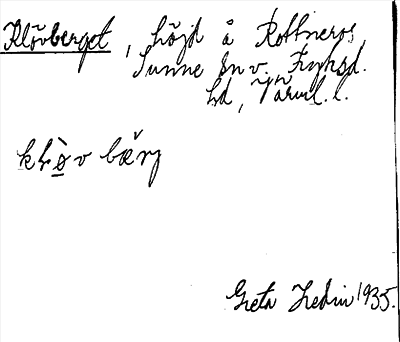 Klövberget, höjd å Rottneros,
Sunne sn v. Fryksd.
hd, Värml. l.
klø̀v bæ̌rj
Greta Hedin 1935.